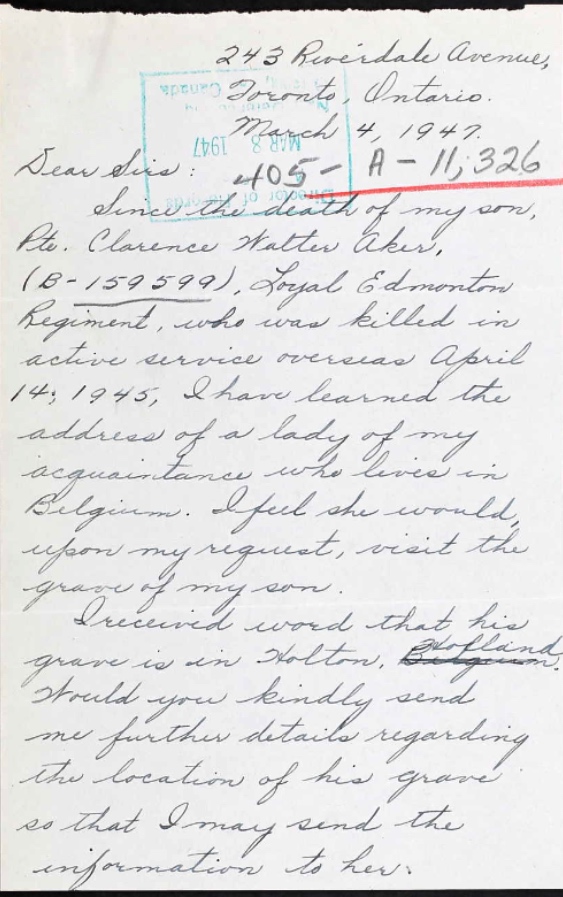 243 Riverdale Avenue,
Toronto, Ontario.
March 4, 1947.
Dear Sirs:
405- A-11,326
Director of Records
MAR 8 1947
Canada
Since the death of my son,
Pte. Clarence Walter Aker,
(B-159599), Loyal Edmonton
Regiment, who was killed in
active service overseas April
14, 1945, I have learned the
address of a lady of my
acquaintance who lives in
Belgium. I feel she would,
upon my request, visit the
grave of my son.
I received word that his
Holland
grave is in Holton, Belgium.
Would you kindly send
me further details regarding
the location of his grave
so that I may send the
information to her.